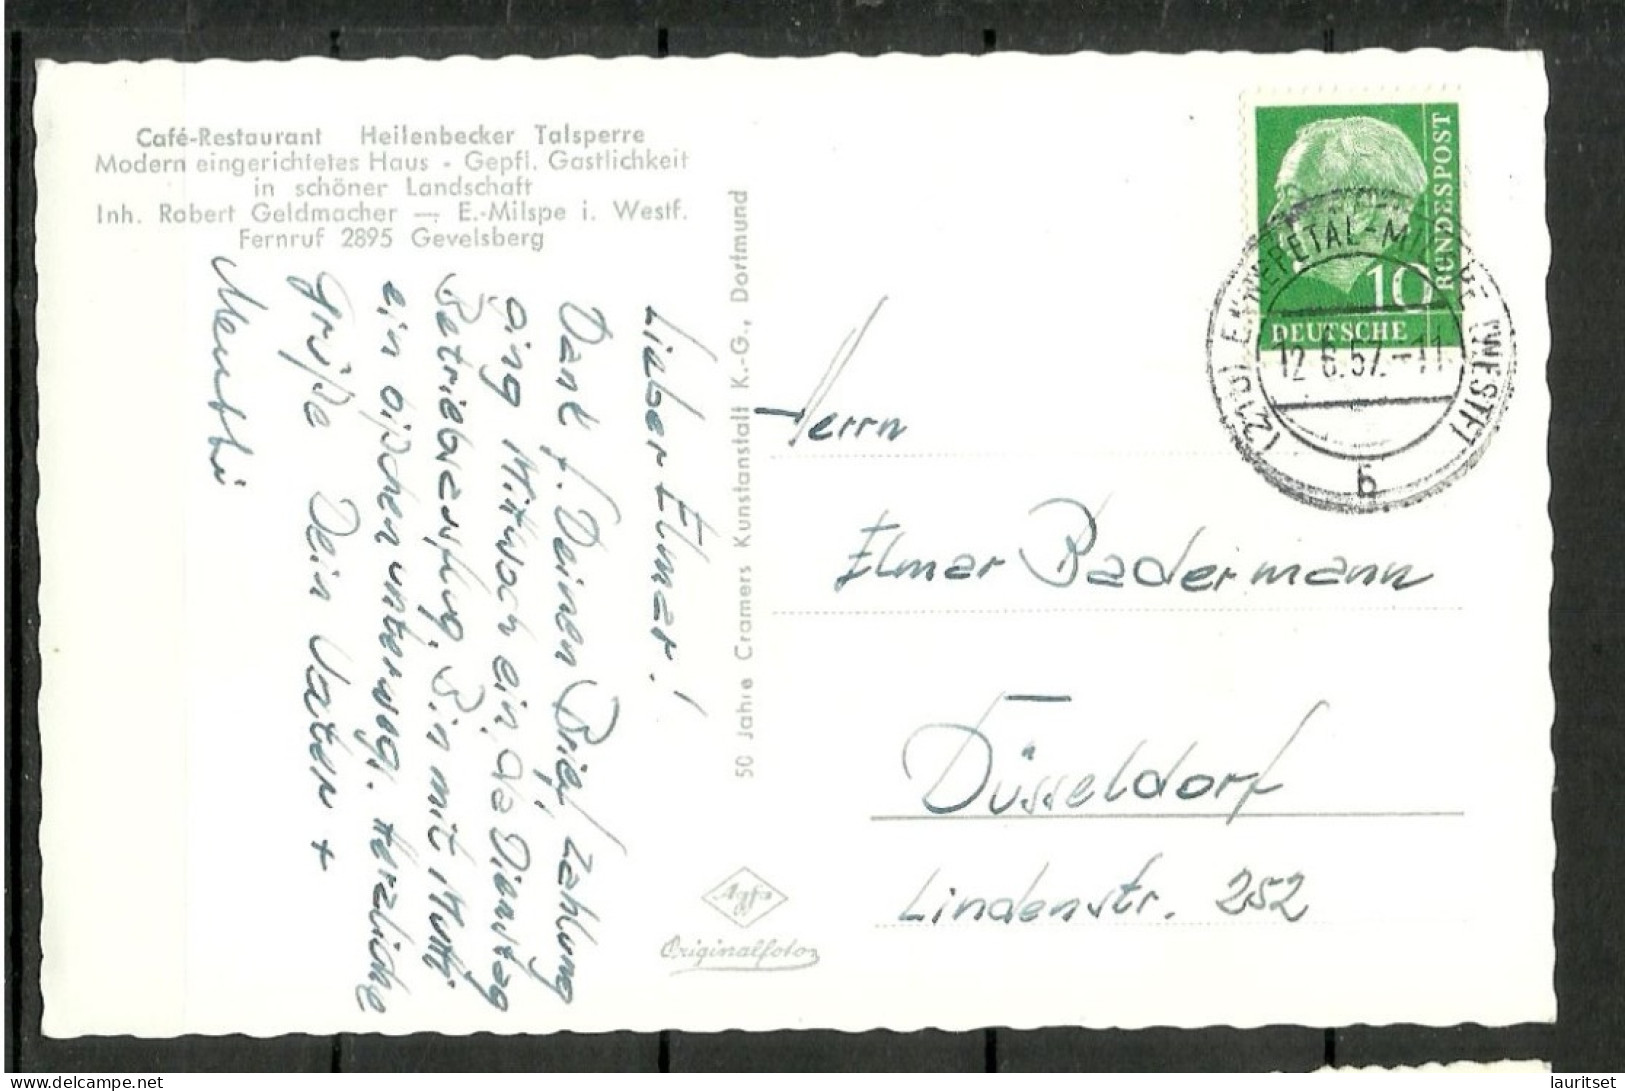 Café-Restaurant Heilenbecker Talsperre
Modern eingerichtetes Haus - Gepfl. Gastlichkeit
in schöner Landschaft
Inh. Robert Geldmacher — E.-Milspe i. Westf.
Fernruf 2895 Gevelsberg
Lieber Elmar!
Dank f. Deinen Brief, Zahlung
ging Mittwoch ein, da Dienstag
Betriebsausflug. Bin mit Mutti
ein bißchen unterwegs. Herzliche
Grüße Dein Vater +
Mutti
50 Jahre Cramers Kunstanstalt K.-G., Dortmund
Agfa
Originalfoto
DEUTSCHE
BUNDESPOST
10
(21b) ENNEPETAL-MILSPE (WESTF)
12.6.57.-11
b
Herrn
Elmar Badermann
Düsseldorf
Lindenstr. 252
lauritset